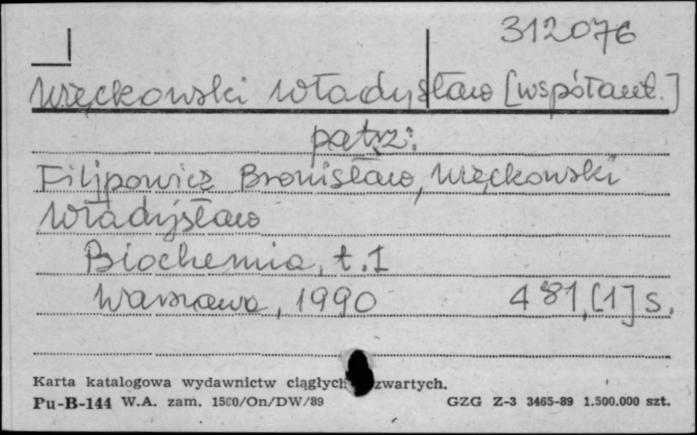 312076
Więckowski Władysław [współaut.]
patrz:
Filipowicz Bronisław, Więckowski
Władysław
Biochemia, t. 1
Warszawa, 1990 481, [1] s.
Karta katalogowa wydawnictw ciągłych zwartych.
Pu-B-144 W.A. zam. 1560/On/DW/89 GZG Z-3 3465-89 1.500.000 szt.